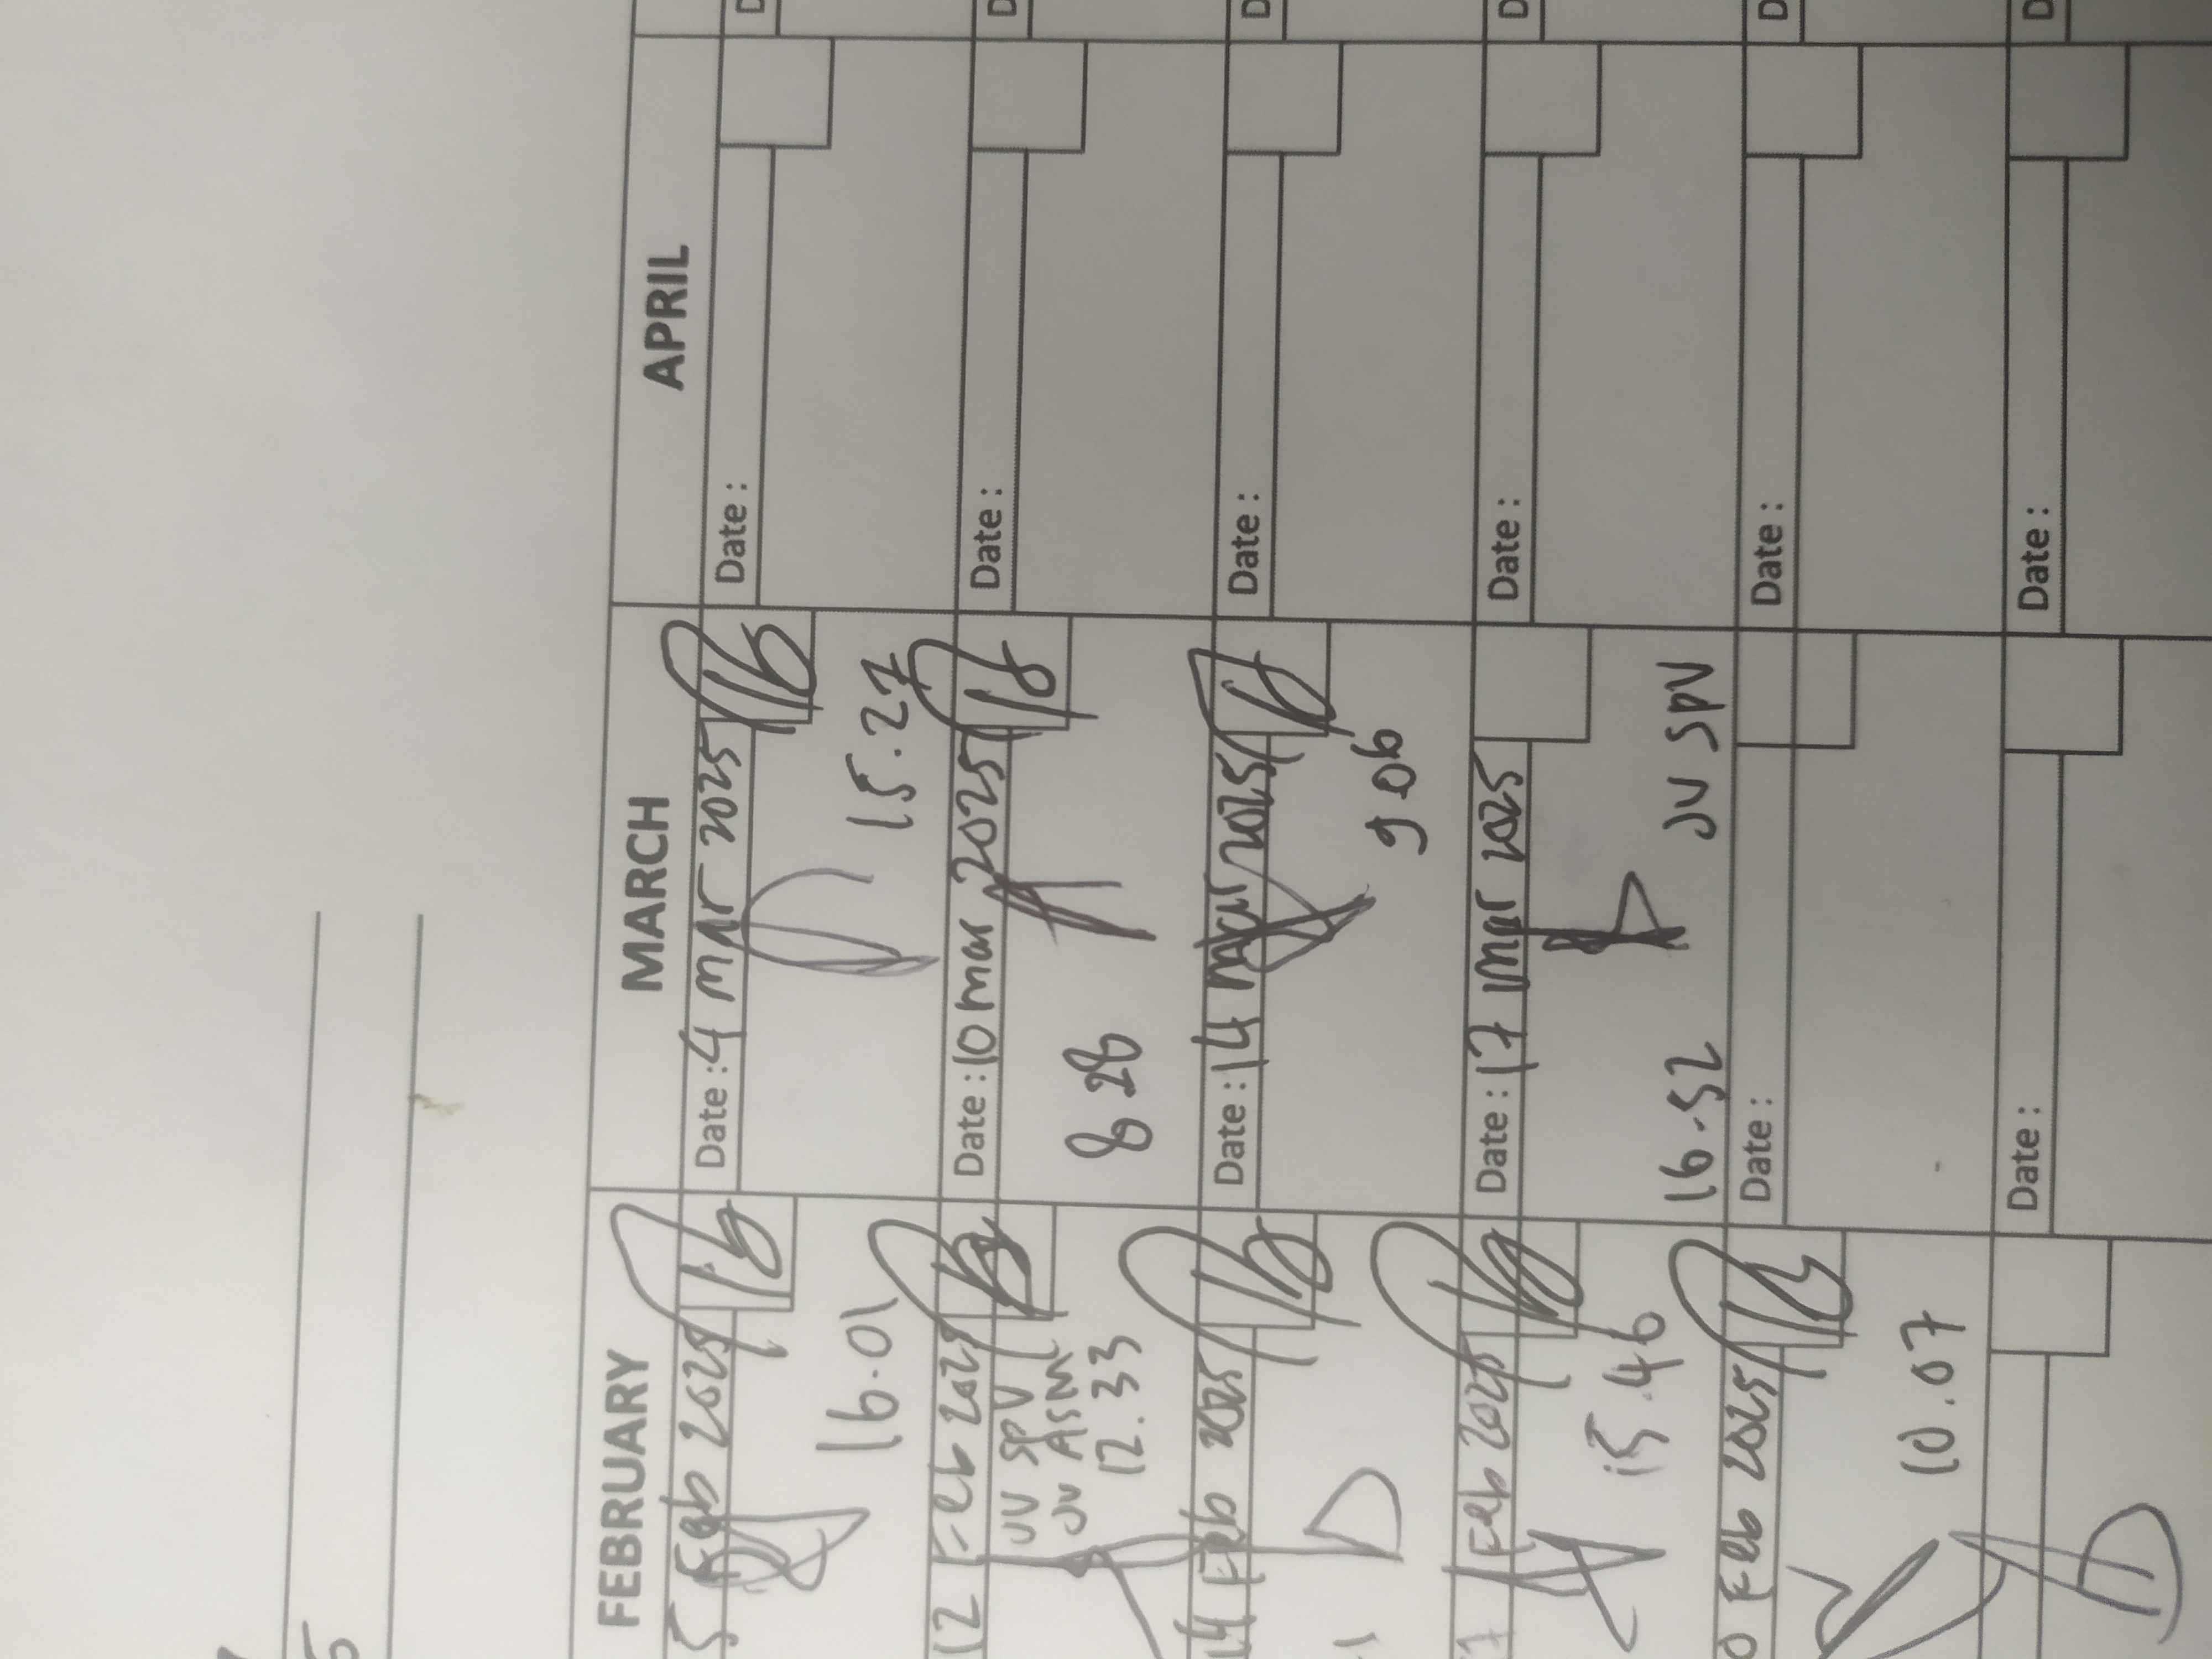 FEBRUARY
5 Feb 2025
16.01
12 Feb 2025
JV SPV
JV ASM
12.33
14 Feb 2025
Feb 2025
15.46
0 Feb 2025
10.07
MARCH
Date : 4 mar 2025
15.27
Date : 10 mar 2025
8 28
Date : 14 mar 2025
9 06
Date : 17 mar 2025
16.52 JV SPV
Date :
Date :
APRIL
Date :
Date :
Date :
Date :
Date :
Date :
D
D
D
D
D
D